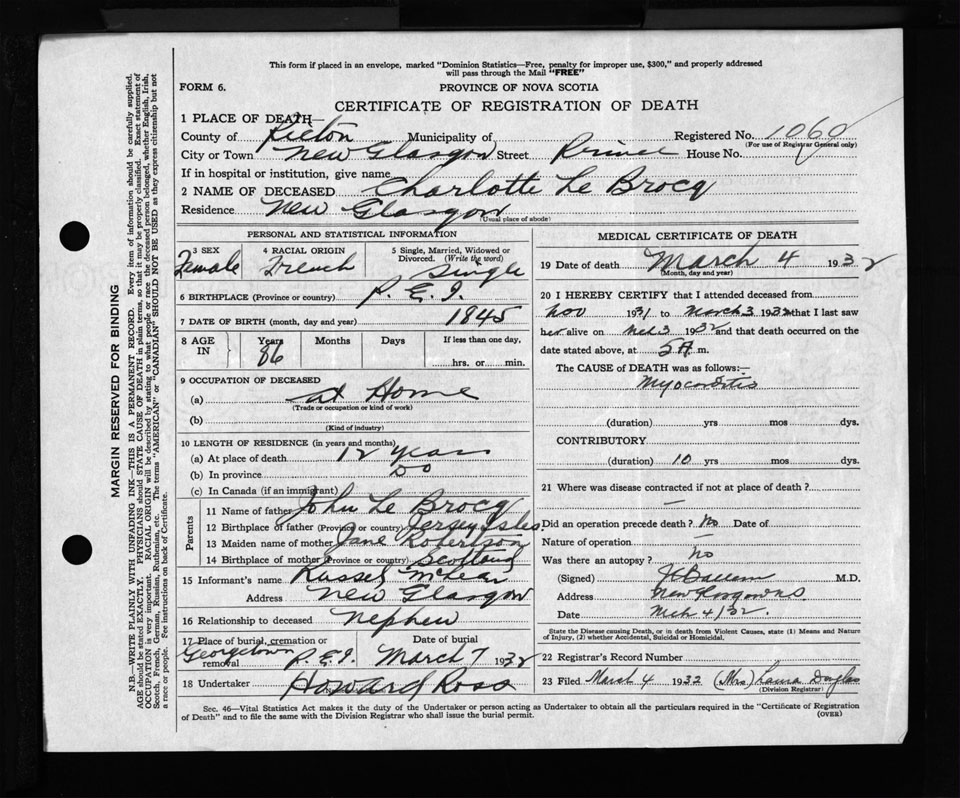 This form if placed in an envelope, marked "Dominion Statistics—Free, penalty for improper use, $300," and properly addressed
will pass through the Mail "FREE"
FORM 6.
PROVINCE OF NOVA SCOTIA
CERTIFICATE OF REGISTRATION OF DEATH
1 PLACE OF DEATH—
County of Pictou Municipality of Registered No. 1060
(For use of Registrar General only)
City or Town New Glasgow Street Prince House No.
If in hospital or institution, give name
2 NAME OF DECEASED Charlotte Le Brocq
Residence New Glasgow
(Usual place of abode)
PERSONAL AND STATISTICAL INFORMATION
3 SEX 4 RACIAL ORIGIN 5 Single, Married, Widowed or
Divorced. (Write the word)
Female French Single
6 BIRTHPLACE (Province or country) P. E. I.
7 DATE OF BIRTH (month, day and year) 1845
8 AGE IN Years Months Days If less than one day,
86 hrs. or min.
9 OCCUPATION OF DECEASED
(a) at Home
(Trade or occupation or kind of work)
(b)
(Kind of industry)
10 LENGTH OF RESIDENCE (in years and months)
(a) At place of death 12 years
(b) In province Do
(c) In Canada (if an immigrant)
Parents
11 Name of father John Le Brocq
12 Birthplace of father (Province or country) Jersey Isles.
13 Maiden name of mother Jane Robertson
14 Birthplace of mother (Province or country) Scotland
15 Informant's name Russel McLean
Address New Glasgow
16 Relationship to deceased Nephew
17 Place of burial, cremation or removal Date of burial
Georgetown P.E.I. March 7 1932
18 Undertaker Howard Ross
MEDICAL CERTIFICATE OF DEATH
19 Date of death March 4 1932
(Month, day and year)
20 I HEREBY CERTIFY that I attended deceased from
Nov 1931 to March 3 1932 that I last saw
her alive on Mch 3 1932 and that death occurred on the
date stated above, at 5 A m.
The CAUSE of DEATH was as follows:—
Myocarditis
(duration) yrs mos dys.
CONTRIBUTORY
(duration) 10 yrs mos dys.
21 Where was disease contracted if not at place of death?
—
Did an operation precede death? No Date of
Nature of operation —
Was there an autopsy? No
(Signed) M.D.
Address New Glasgow N.S.
Date Mch 4/32.
State the Disease causing Death, or in death from Violent Causes, state (1) Means and Nature
of Injury, (2) whether Accidental, Suicidal or Homicidal.
22 Registrar's Record Number
23 Filed March 4 1932 (Mrs) Laura Douglas
(Division Registrar)
Sec. 46—Vital Statistics Act makes it the duty of the Undertaker or person acting as Undertaker to obtain all the particulars required in the "Certificate of Registration
of Death" and to file the same with the Division Registrar who shall issue the burial permit.
(OVER)
MARGIN RESERVED FOR BINDING
N.B.—WRITE PLAINLY WITH UNFADING INK—THIS IS A PERMANENT RECORD. Every item of information should be carefully supplied.
AGE should be stated EXACTLY. PHYSICIANS should STATE CAUSE OF DEATH in plain terms, so that it may be properly classified. Exact statement of
OCCUPATION is very important. RACIAL ORIGIN will be described by stating to what people or race the deceased person belonged, whether English, Irish,
Scotch, French, German, Russian, Ruthenian, etc. The terms "AMERICAN" or "CANADIAN" SHOULD NOT BE USED as they express citizenship but not
a race or people. See instructions on back of Certificate.